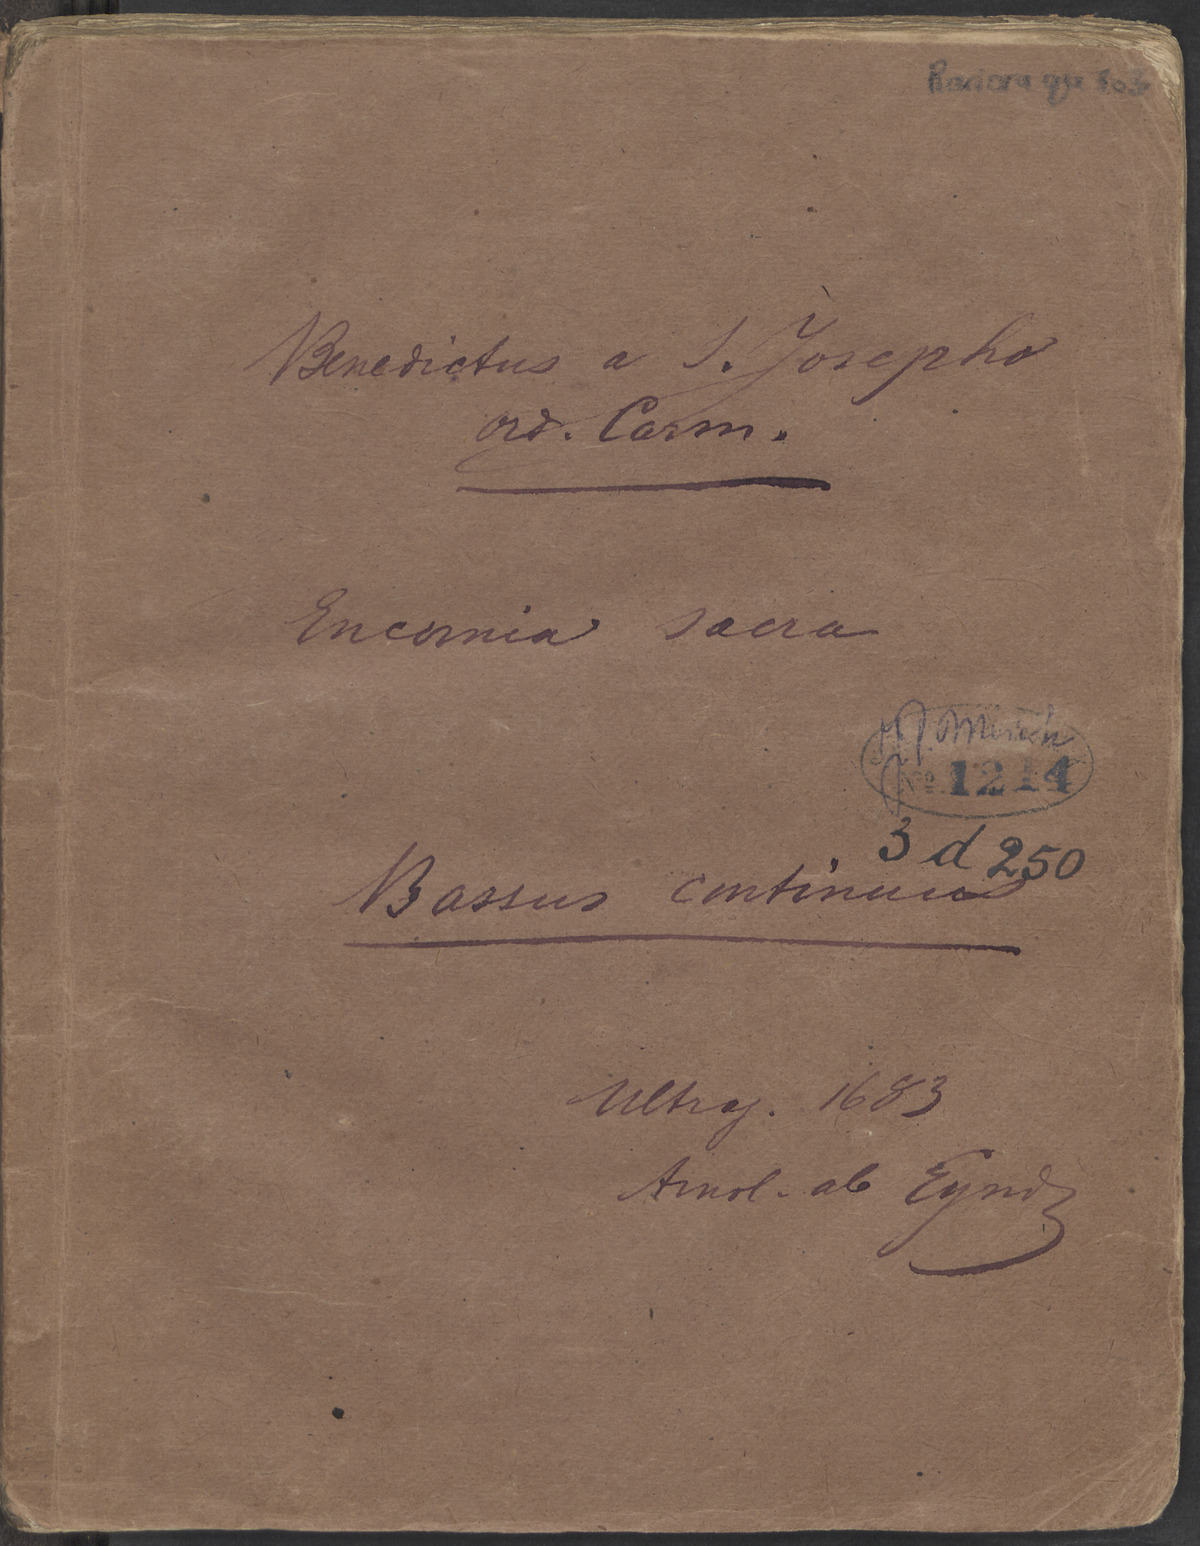 Benedictus a S. Josepho
ord. Carm.
Encomia sacra
No 1214
3 d 250
Bassus continuus
Ultraj. 1683
Arnol. ab Eynd